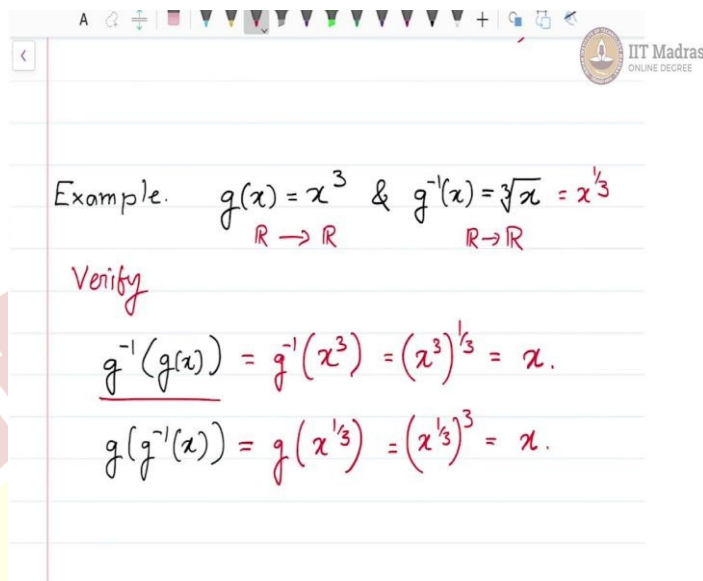 A
IIT Madras
ONLINE DEGREE
Example. g(x) = x³ & g⁻¹(x) = ∛x = x^{1/3}
ℝ → ℝ ℝ → ℝ
Verify
g⁻¹(g(x)) = g⁻¹(x³) = (x³)^{1/3} = x.
g(g⁻¹(x)) = g(x^{1/3}) = (x^{1/3})³ = x.